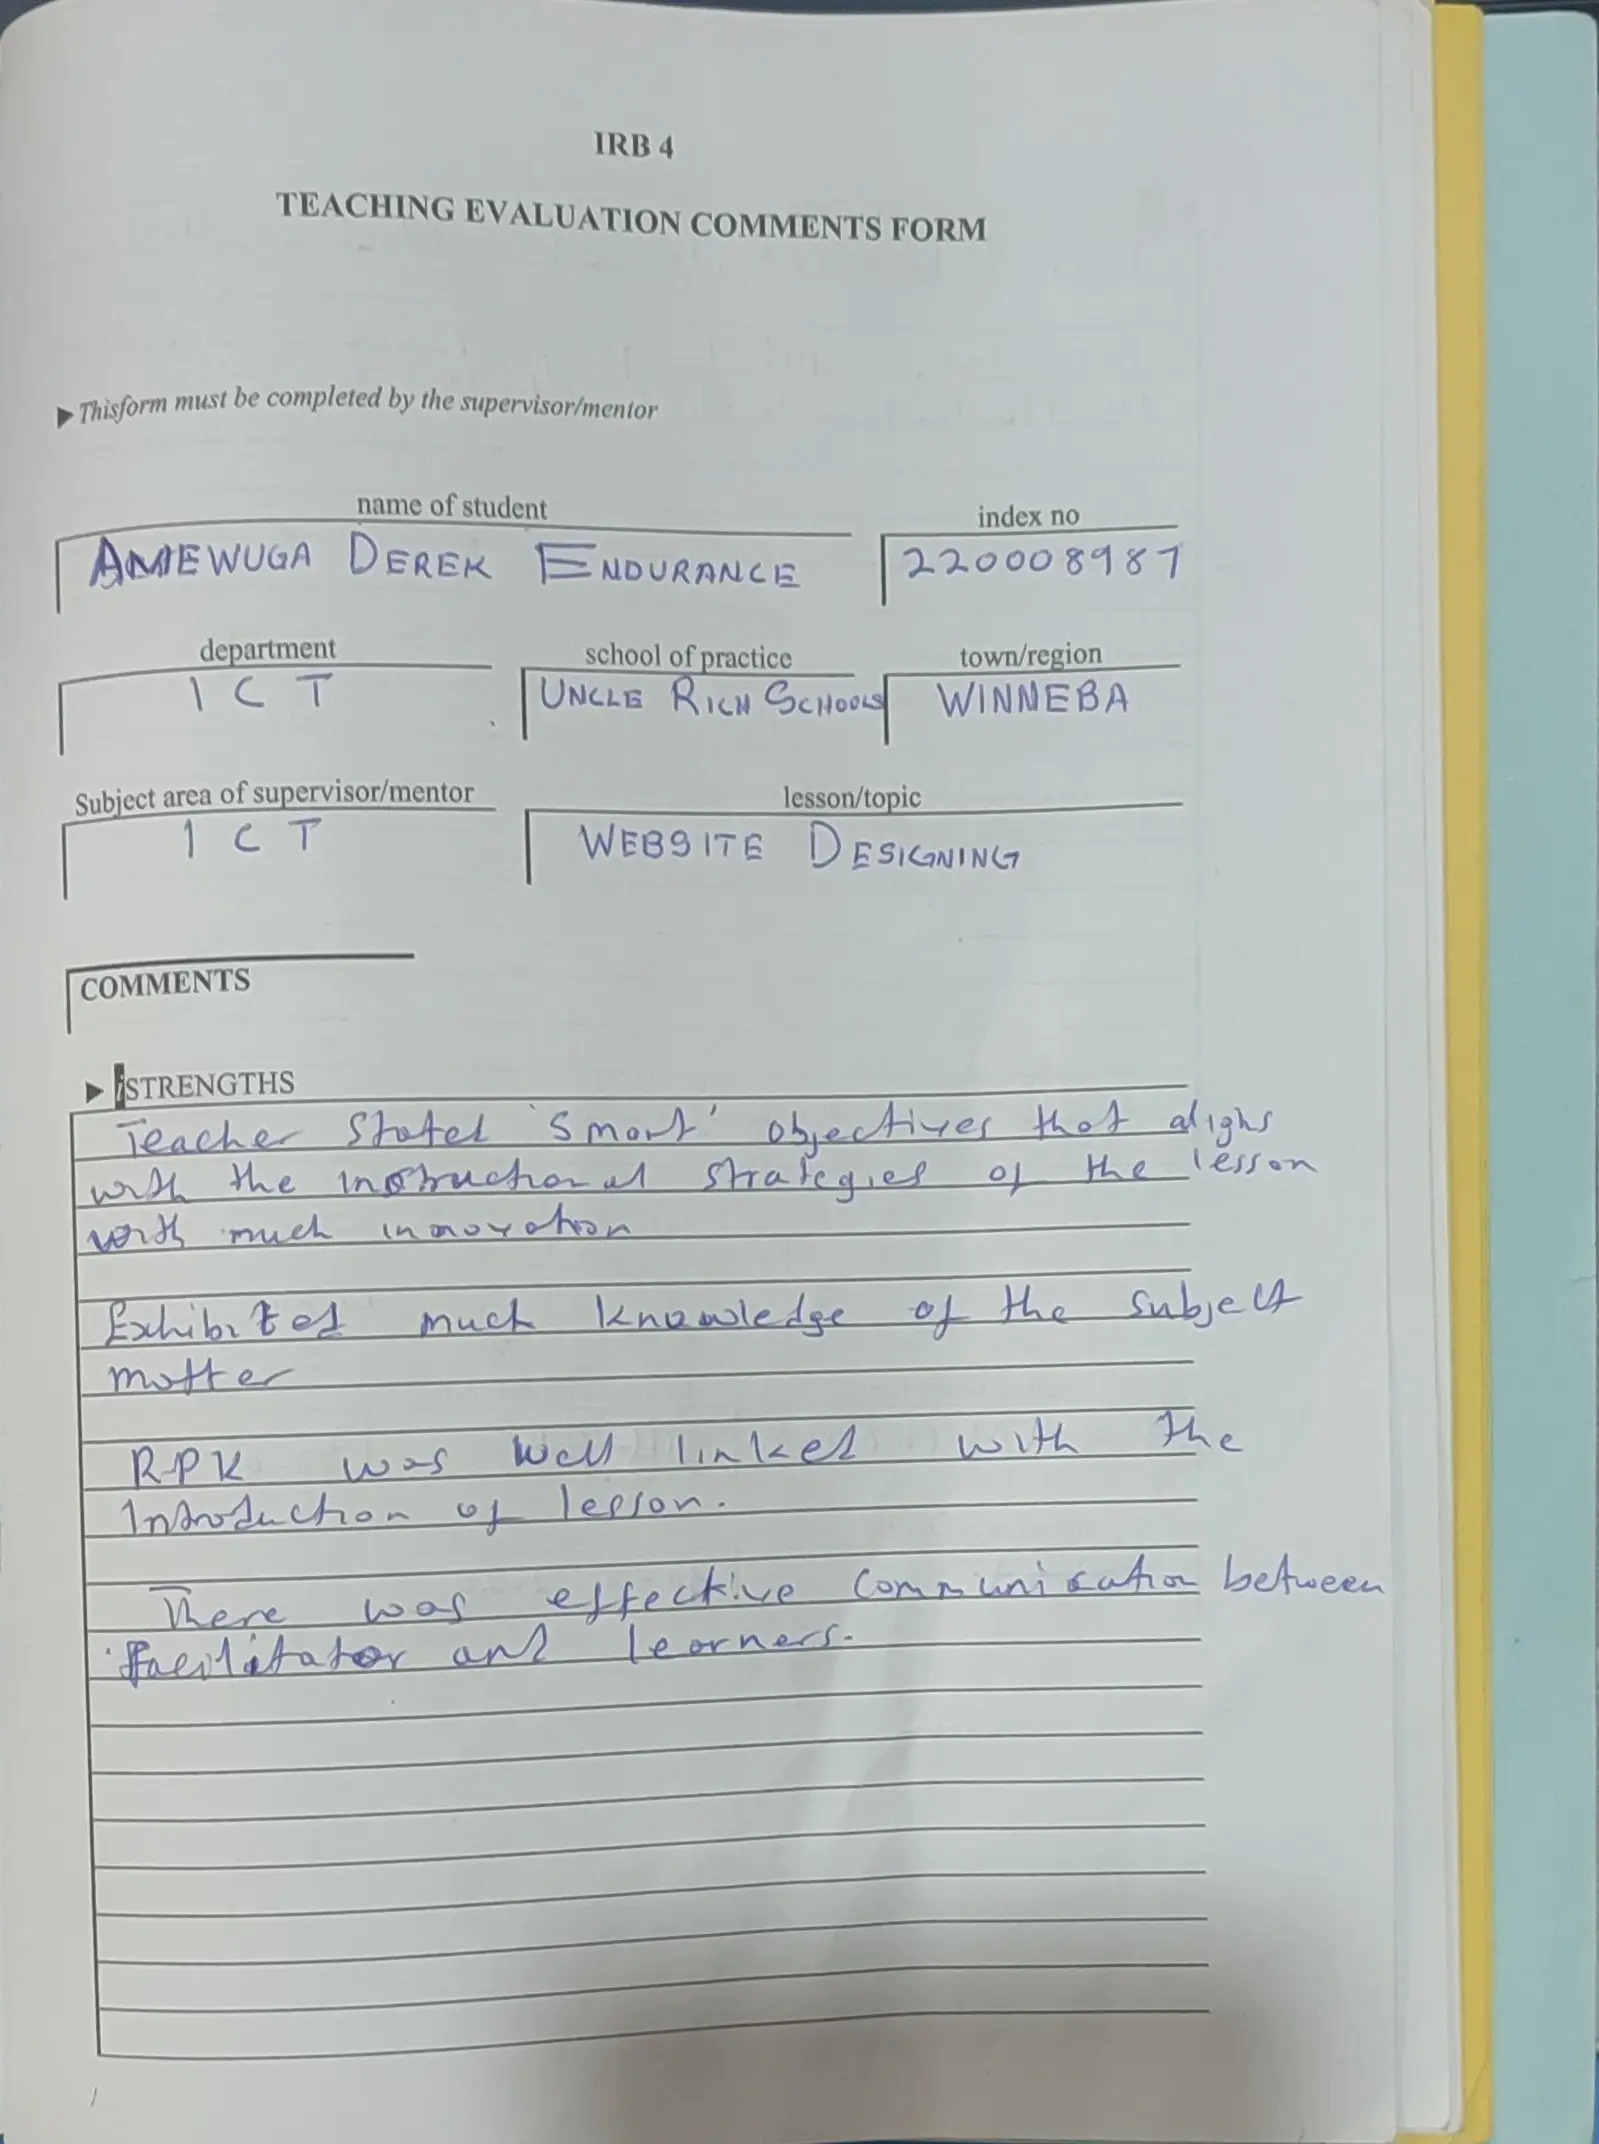 IRB 4
TEACHING EVALUATION COMMENTS FORM
▶ Thisform must be completed by the supervisor/mentor
name of student
index no
AMEWUGA DEREK ENDURANCE
220008987
department
school of practice
town/region
ICT
UNCLE RICH SCHOOLS
WINNEBA
Subject area of supervisor/mentor
lesson/topic
ICT
WEBSITE DESIGNING
COMMENTS
▶ iSTRENGTHS
Teacher Stated 'Smart' objectives that aligns
with the instructional strategies of the lesson
with much innovation
Exhibited much knowledge of the subject
matter
RPK was well linked with the
Introduction of lesson.
There was effective communication between
facilitator and learners.